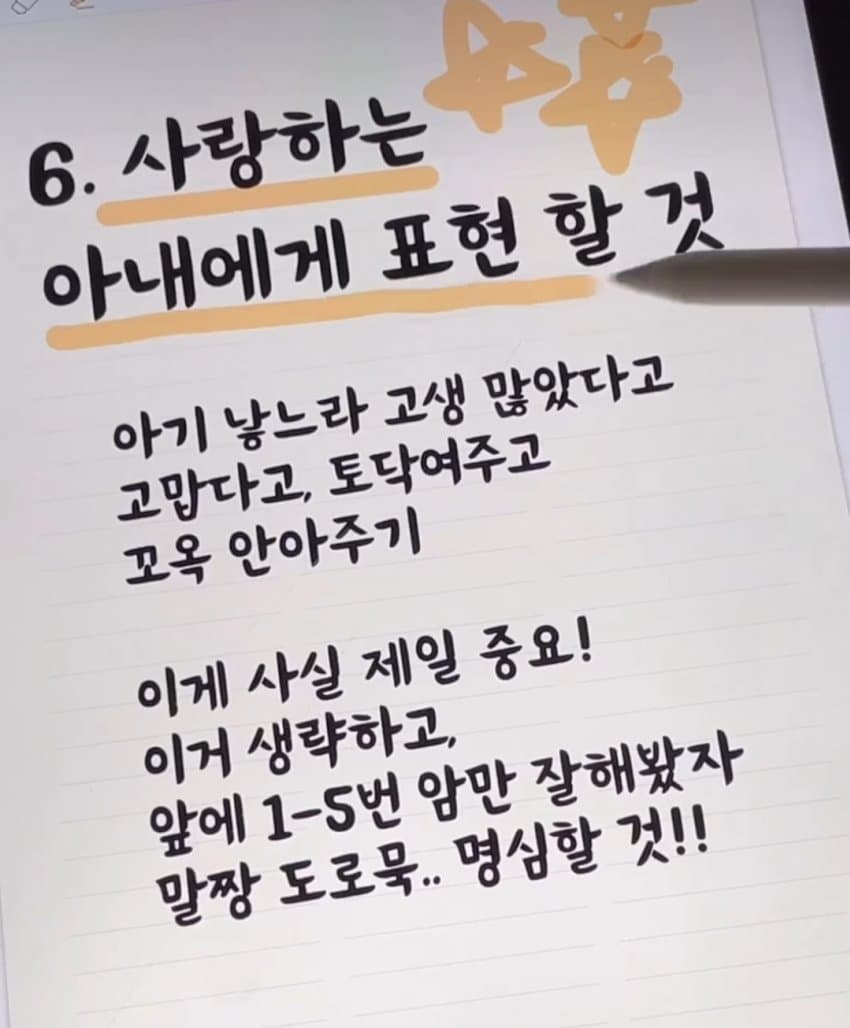 6. 사랑하는
아내에게 표현 할 것
아기 낳느라 고생 많았다고
고맙다고, 토닥여주고
꼬옥 안아주기
이게 사실 제일 중요!
이거 생략하고,
앞에 1-5번 암만 잘해봤자
말짱 도로묵.. 명심할 것!!